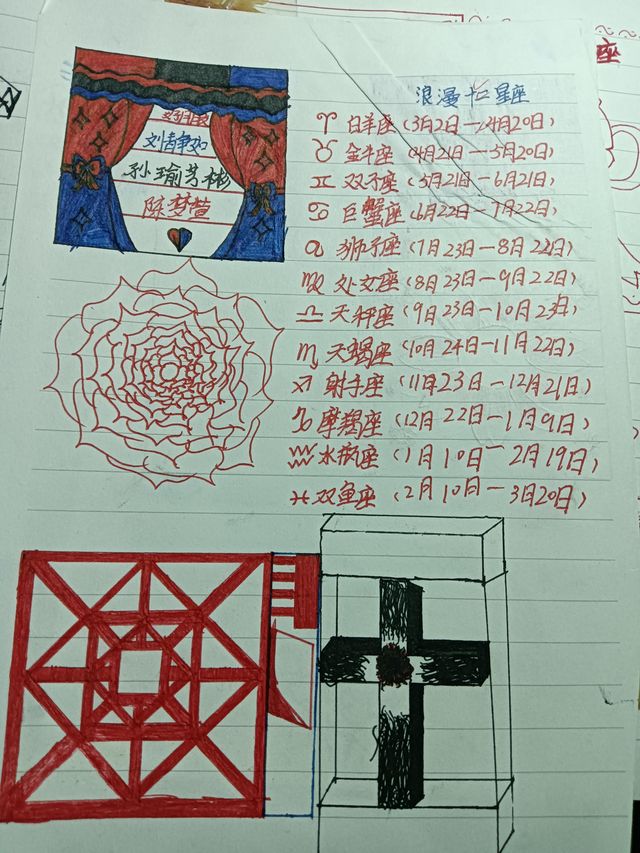 刘静如
孙瑜艺彬
陈梦萱
浪漫十二星座
♈白羊座(3月2日—4月20日)
♉金牛座(4月21日—5月20日)
♊双子座(5月21日—6月21日)
♋巨蟹座(6月22日—7月22日)
♌狮子座(7月23日—8月22日)
♍处女座(8月23日—9月22日)
♎天秤座(9月23日—10月23日)
♏天蝎座(10月24日—11月22日)
♐射手座(11月23日—12月21日)
♑摩羯座(12月22日—1月9日)
♒水瓶座(1月10日—2月19日)
♓双鱼座(2月10日—3月20日)
座